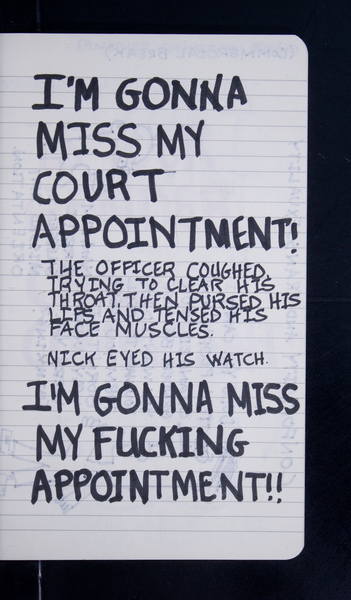 I'M GONNA
MISS MY
COURT
APPOINTMENT!
THE OFFICER COUGHED,
TRYING TO CLEAR HIS
THROAT, THEN PURSED HIS
LIPS AND TENSED HIS
FACE MUSCLES.
NICK EYED HIS WATCH.
I'M GONNA MISS
MY FUCKING
APPOINTMENT!!